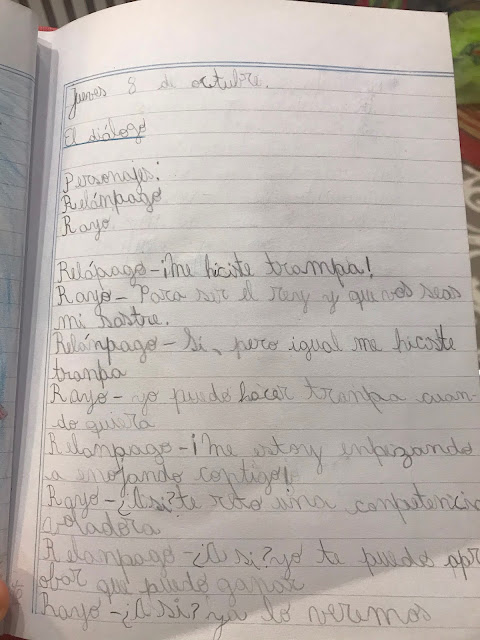 Jueves 8 de octubre.
El diálogo
Personajes:
Relámpago
Rayo
Relápago-¡Me hiciste trampa!
Rayo-Para ser el rey y que vos seas
mi sastre.
Relánpago-Si, pero igual me hiciste
tranpa
Rayo-yo puedo hacer tranpa cuan-
do quiera
Relanpago-¡Me estoy enpezando
a enojando contigo!
Rayo-¿Asi? te reto una conpetencia
voladora
Relanpago-¿A si? yo te puedo apr
obar que puedo ganar
Rayo-¿A si? ya lo veremos